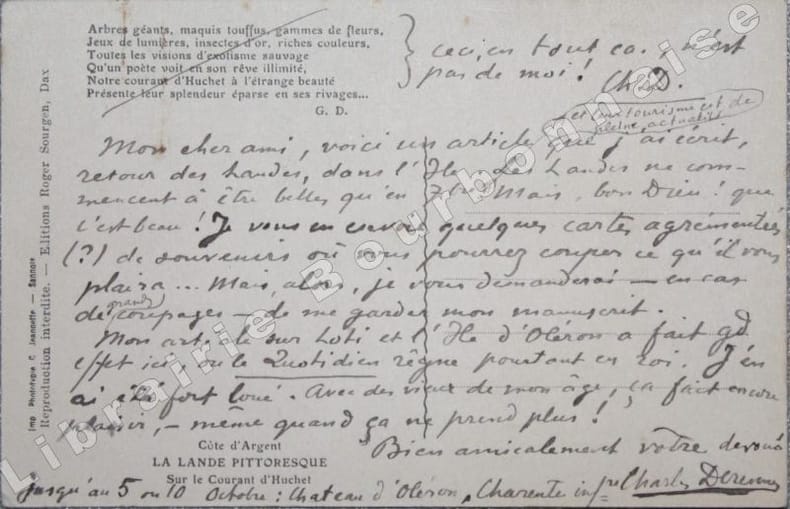 Arbres géants, maquis touffus, gammes de fleurs,
Jeux de lumières, insectes d'or, riches couleurs,
Toutes les visions d'exotisme sauvage
Qu'un poète voit en son rêve illimité,
Notre courant d'Huchet à l'étrange beauté
Présente leur splendeur éparse en ses rivages...
G. D.
ceci, en tout cas, n'est
pas de moi ! Ch D.
et le tourisme est de
pleine actualité
Mon cher ami, voici un article que j'ai écrit,
retour des Landes, dans l'Ile. Les Landes ne com-
mencent à être belles qu'en 7bre. Mais, bon Dieu ! que
c'est beau ! Je vous en envoie quelques cartes agrémentées
(?) de souvenirs où vous pourrez couper ce qu'il vous
plaira... Mais, alors, je vous demanderai — en cas
de grands coupages — de me garder mon manuscrit.
Mon article sur Loti et l'Ile d'Oléron a fait gd
effet ici, où le Quotidien règne pourtant en roi. J'en
ai été fort loué. Avec des vieux de mon âge, ça fait encore
plaisir, — même quand ça ne prend plus !
Bien amicalement votre dévoué
Charles Derennes
Côte d'Argent
LA LANDE PITTORESQUE
Sur le Courant d'Huchet
Jusqu'au 5 ou 10 Octobre : Chateau d'Oléron, Charente infre
Imp Phototypie C. Jeannette — Sannois
Reproduction interdite. — Editions Roger Sourgen, Dax
Librairie Bourbonnaise